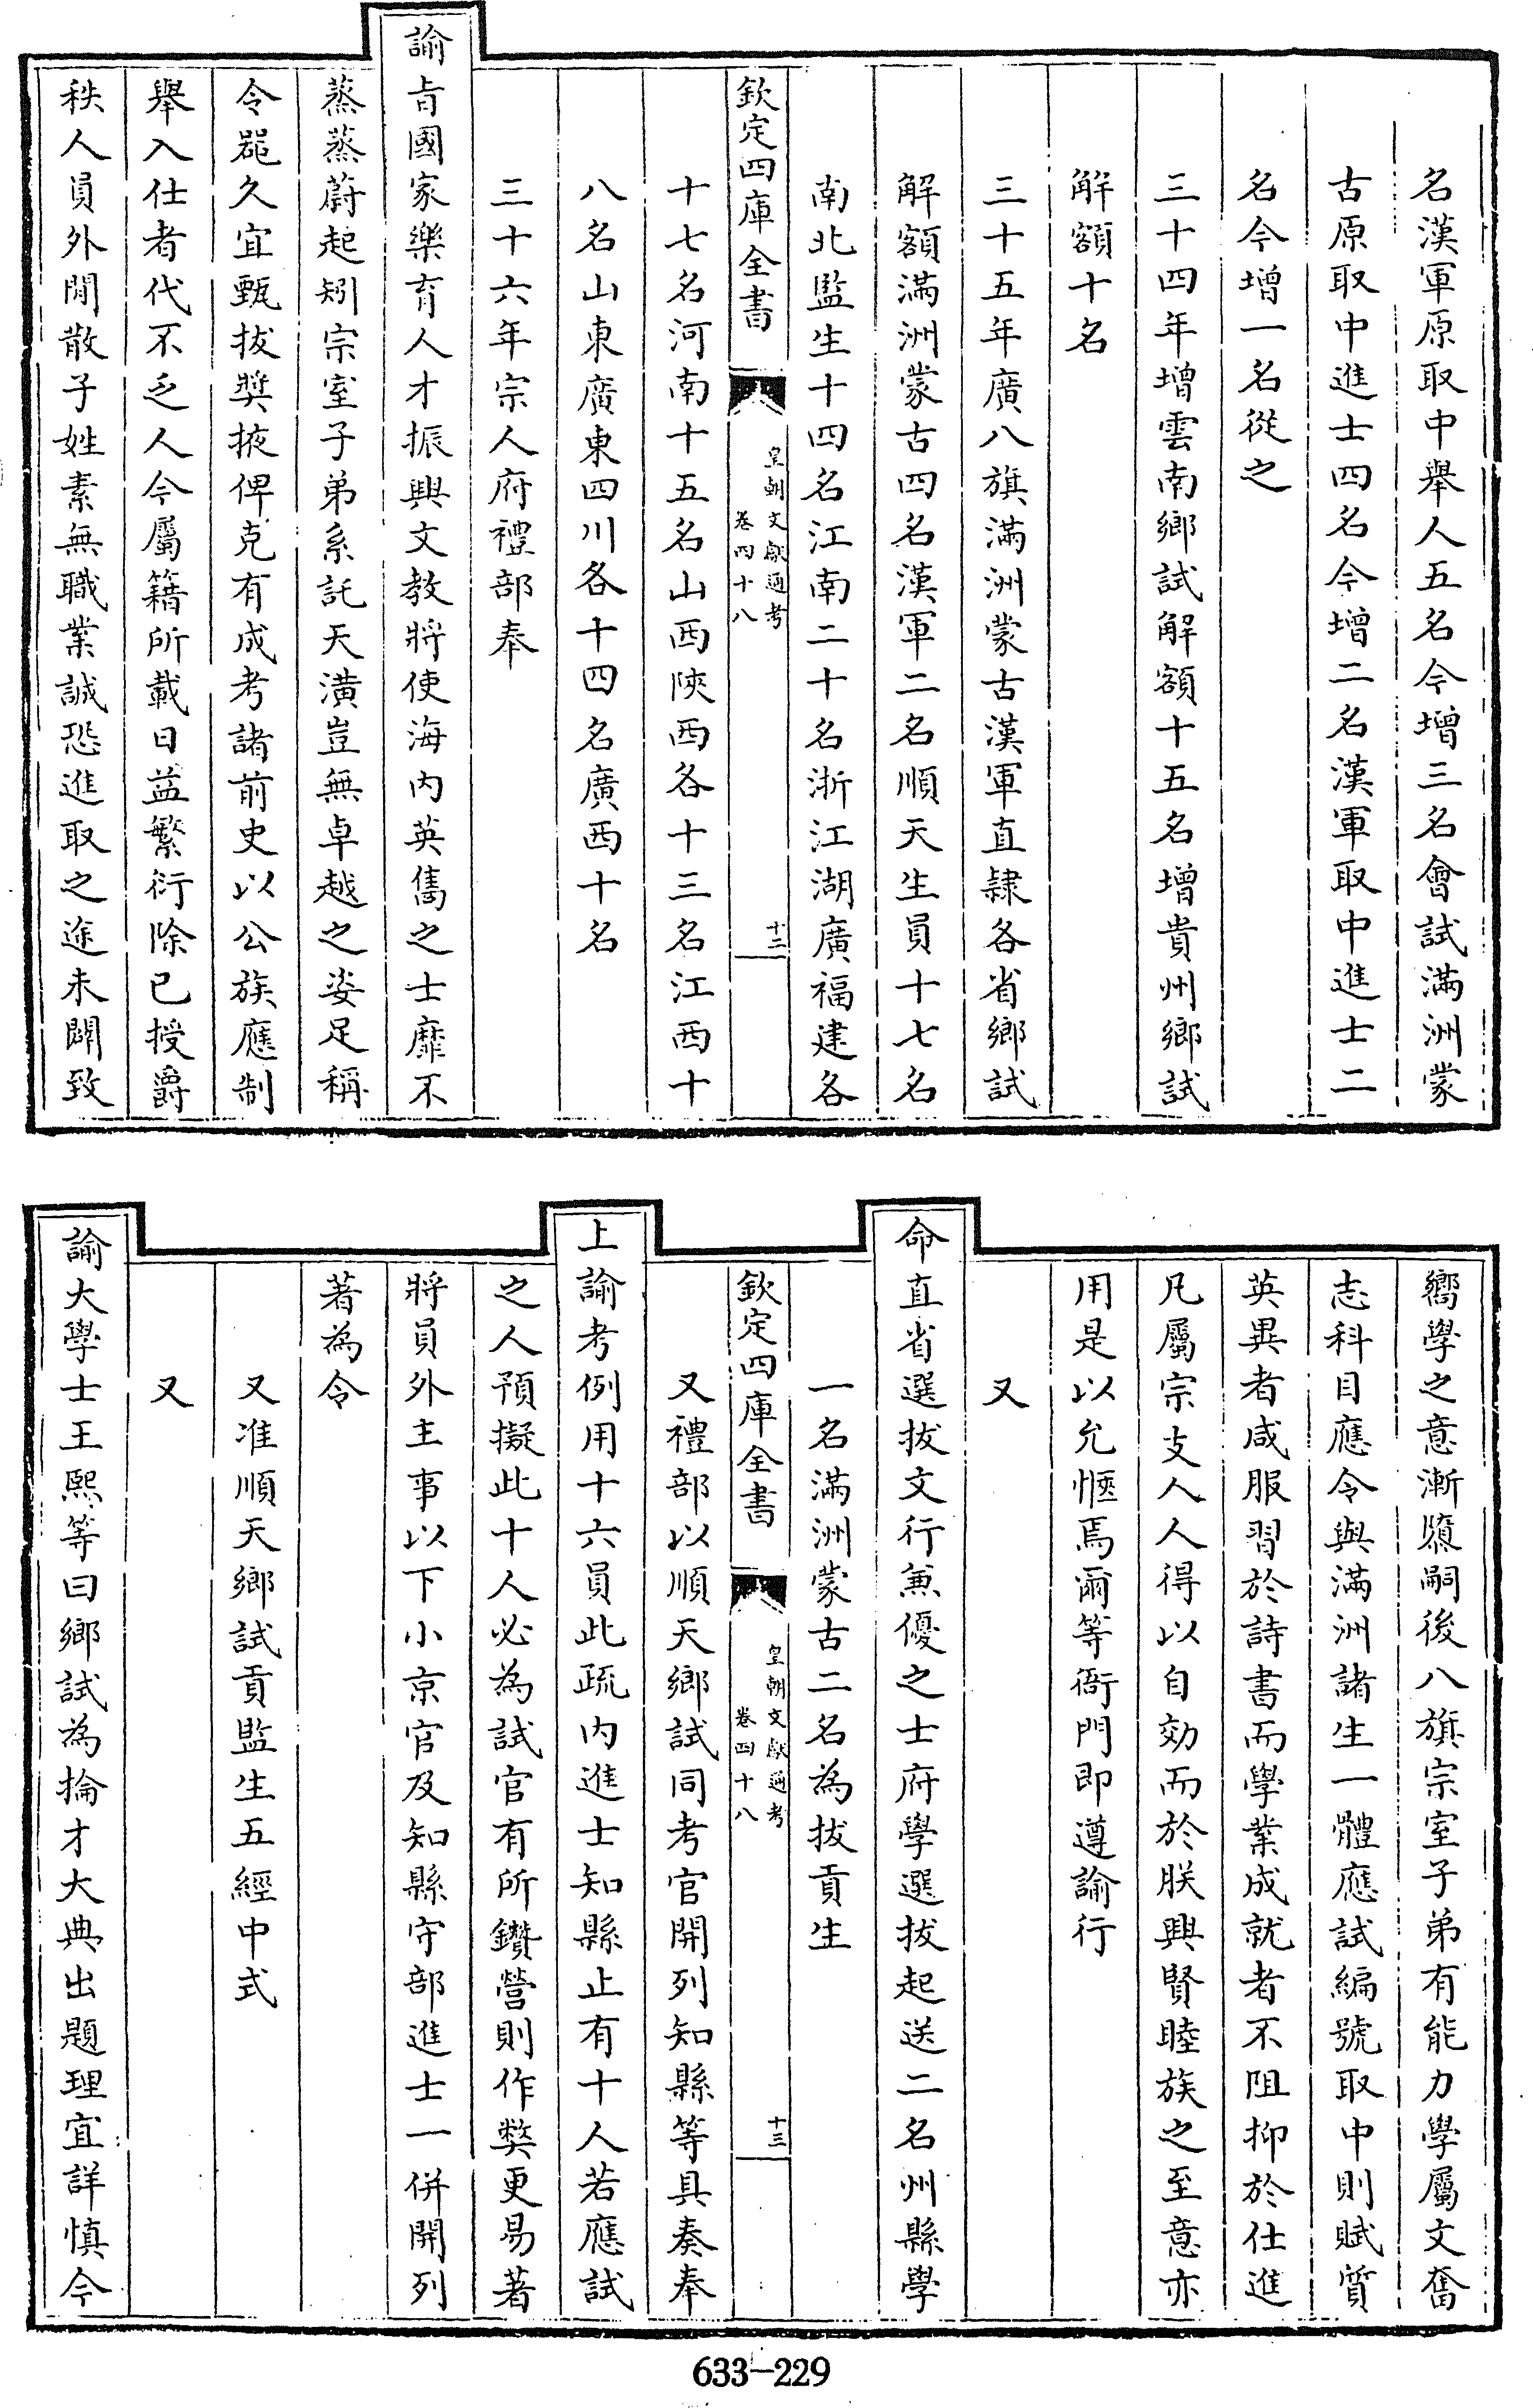 名漢軍原取中舉人五名今增三名會試滿洲蒙
古原取中進士四名今增二名漢軍取中進士二
名今增一名從之
三十四年增雲南鄉試解額十五名增貴州鄉試
解額十名
三十五年廣八旗滿洲蒙古漢軍直隷各省鄉試
解額滿洲蒙古四名漢軍二名順天生員十七名
南北監生十四名江南二十名浙江湖廣福建各
欽定四庫全書
皇朝文獻通考
卷四十八
十二
十七名河南十五名山西陜西各十三名江西十
八名山東廣東四川各十四名廣西十名
三十六年宗人府禮部奉
諭旨國家樂育人才振興文教將使海內英雋之士靡不
蒸蒸蔚起矧宗室子弟系託天潢豈無卓越之姿足稱
令器久宜甄拔奬掖俾克有成考諸前史以公族應制
舉入仕者代不乏人今屬籍所載日益繁衍除已授爵
秩人員外閒散子姓素無職業誠恐進取之途未闢致
嚮學之意漸隳嗣後八旗宗室子弟有能力學屬文奮
志科目應令與滿洲諸生一體應試編號取中則賦質
英異者咸服習於詩書而學業成就者不阻抑於仕進
凡屬宗支人人得以自効而於朕興賢睦族之至意亦
用是以允愜焉爾等衙門即遵諭行
又
命直省選拔文行兼優之士府學選拔起送二名州縣學
一名滿洲蒙古二名為拔貢生
欽定四庫全書
皇朝文獻通考
卷四十八
十三
又禮部以順天鄉試同考官開列知縣等具奏奉
上諭考例用十六員此疏內進士知縣止有十人若應試
之人預擬此十人必為試官有所鑽營則作弊更易著
將員外主事以下小京官及知縣守部進士一併開列
著為令
又准順天鄉試貢監生五經中式
又
諭大學士王熙等曰鄉試為掄才大典出題理宜詳慎今
633-229